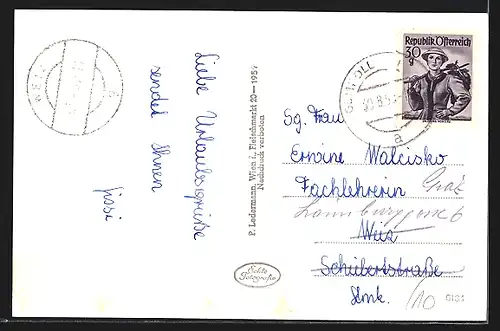 Liebe Urlaubsgrüße
sendet Ihnen
Jissi
P. Ledermann, Wien I., Fleischmarkt 20 — 1954
Nachdruck verboten
Echte
Fotografie
Republik Österreich
30
g
WEIZ
a
Sg. Frau
Erwine Walcisko
Fachlehrerin
Graz
6
Weiz
Schubertstraße
Stmk.
10